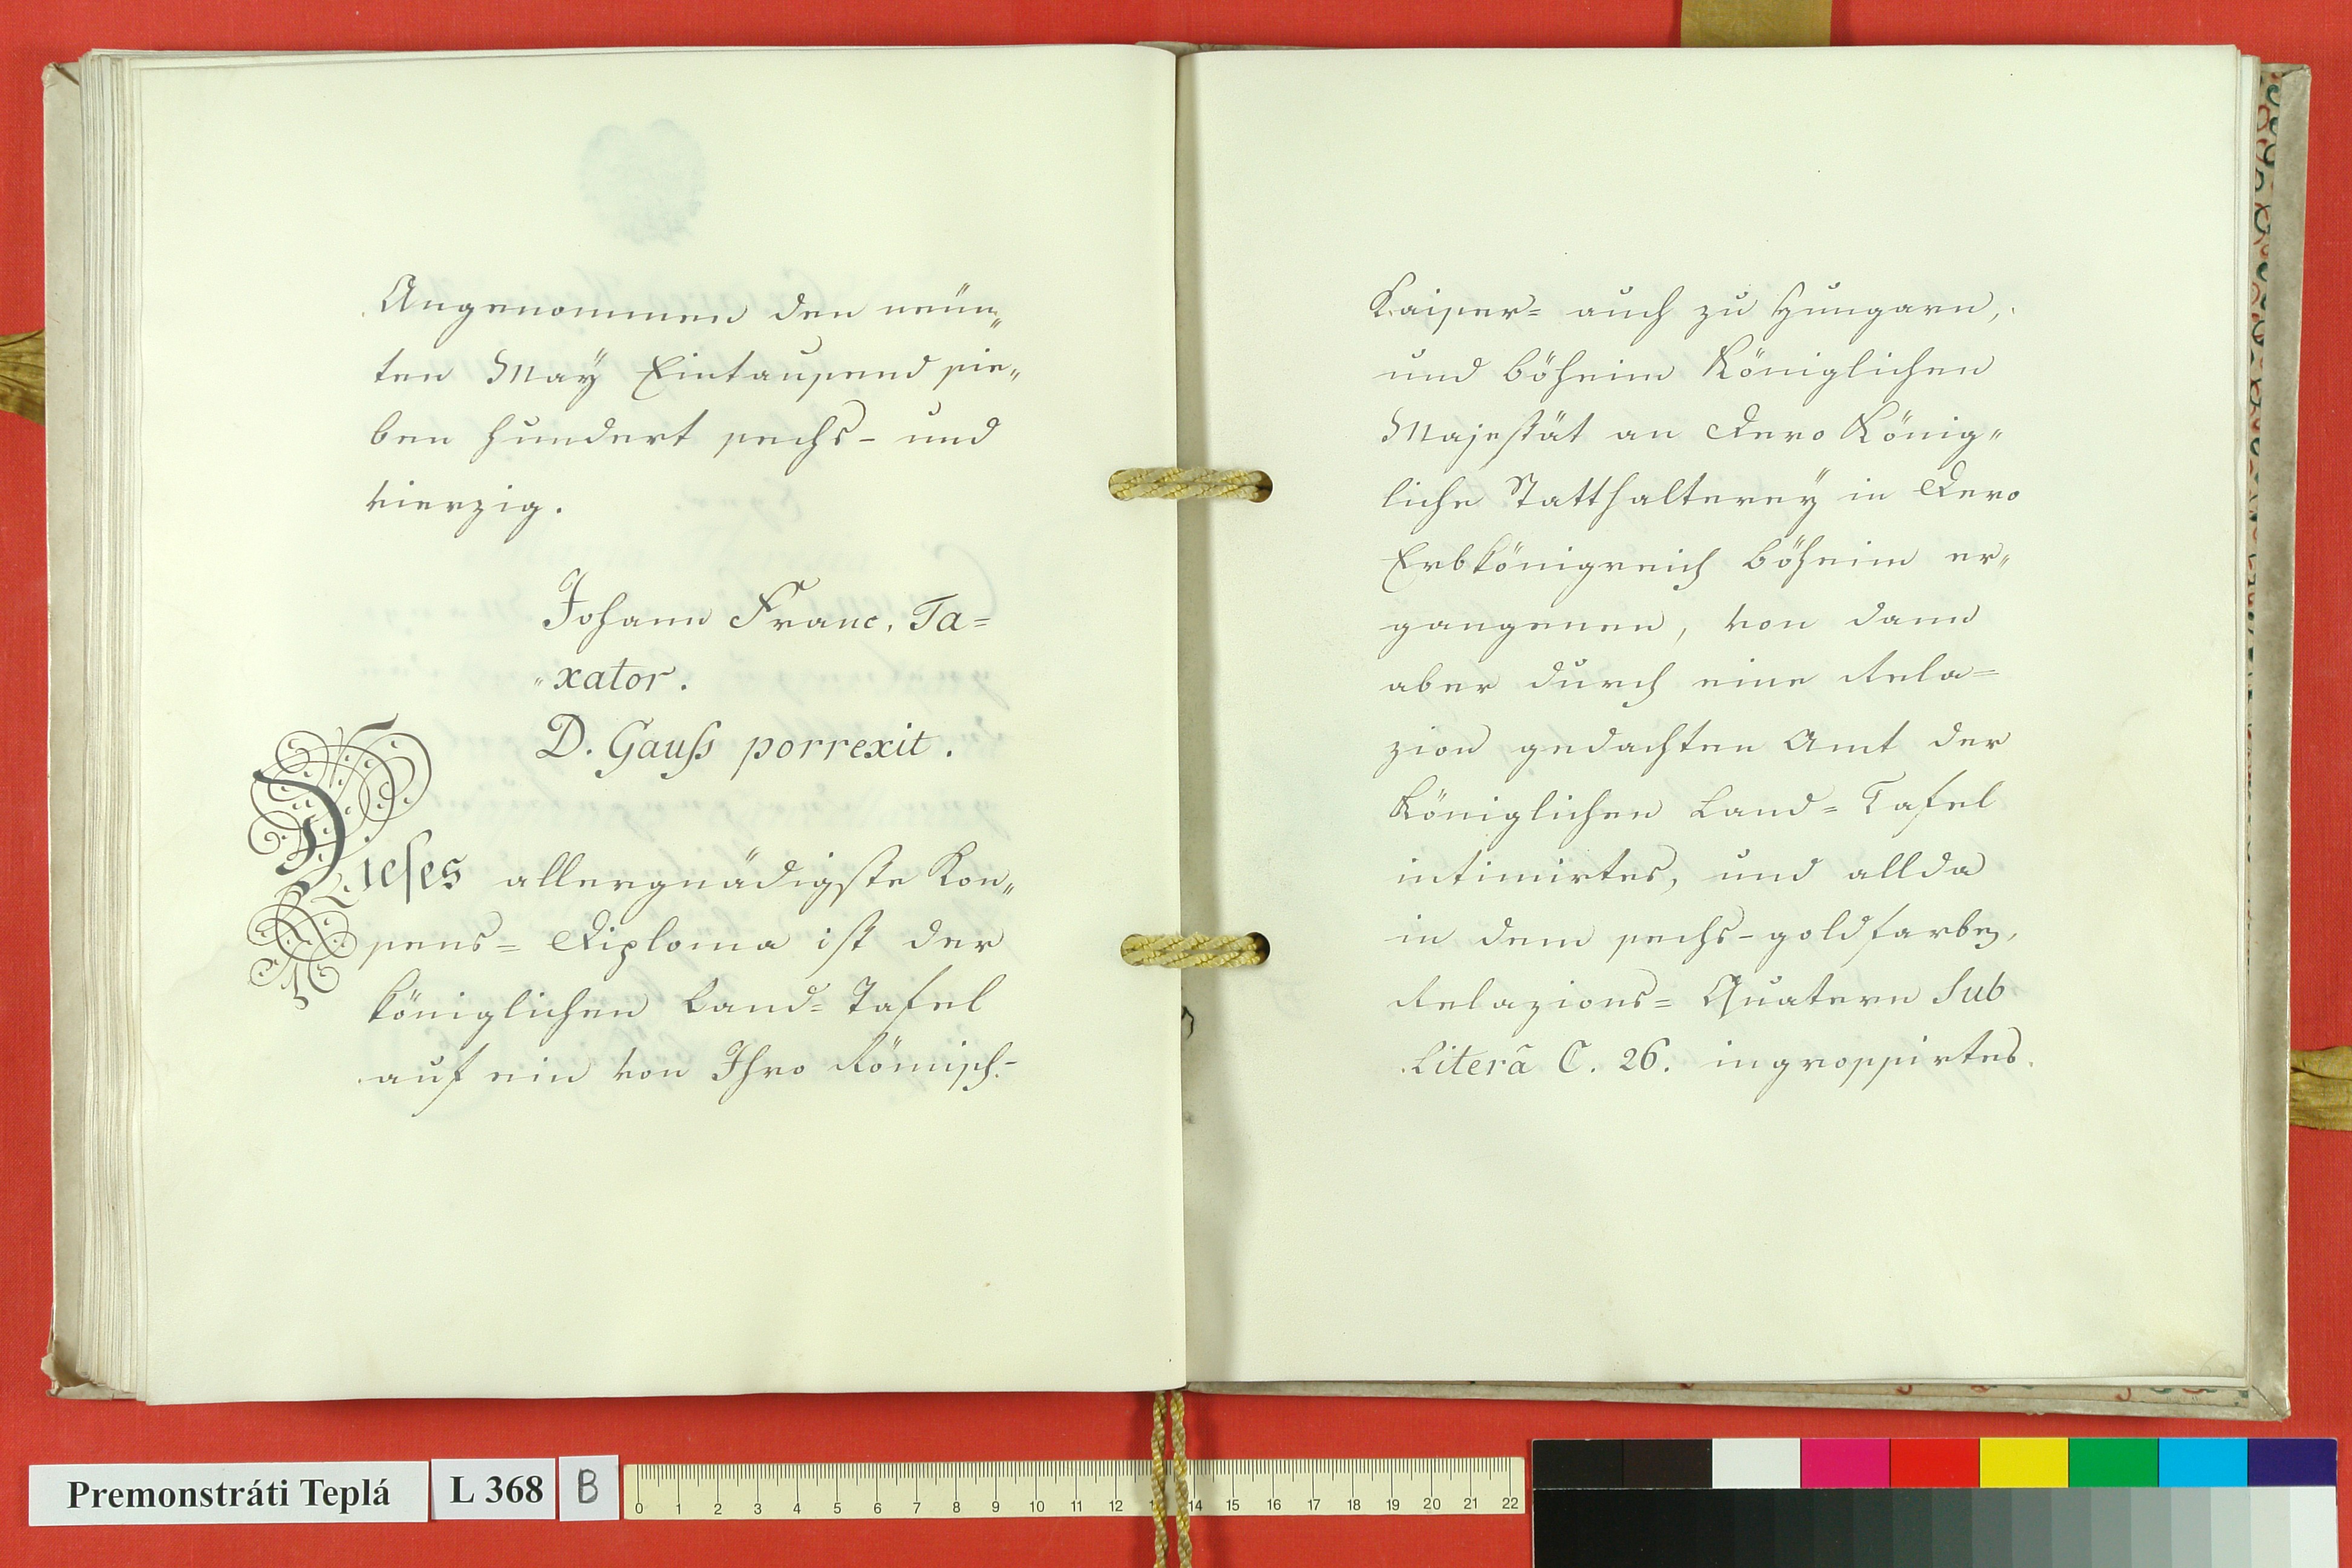 Angenommen den neün„
ten Maÿ Eintausend sie„
ben hundert sechs- und
vierzig.
Johann Franc. Ta=
„xator.
D. Gauß porrexit.
Dieses allergnädigste Kon„
sens= Diploma ist der
königlichen Land= Tafel
auf ein von Ihro Römisch.-
Kaiser= auch zu Hungarn,
und böheim Königlichen
Majestät an Dero König„
liche Statthalterey in Dero
Erbkönigreich böheim er„
gangenen, von dann
aber durch eine Rela=
zion gedachten Amt der
Königlichen Land= Tafel
intimirtes, und allda
in dem sechs-goldfarben,
Relazions= Quatern Sub
Litera C. 26. ingrossirtes
Premonstráti Teplá L 368 B
0 1 2 3 4 5 6 7 8 9 10 11 12 13 14 15 16 17 18 19 20 21 22